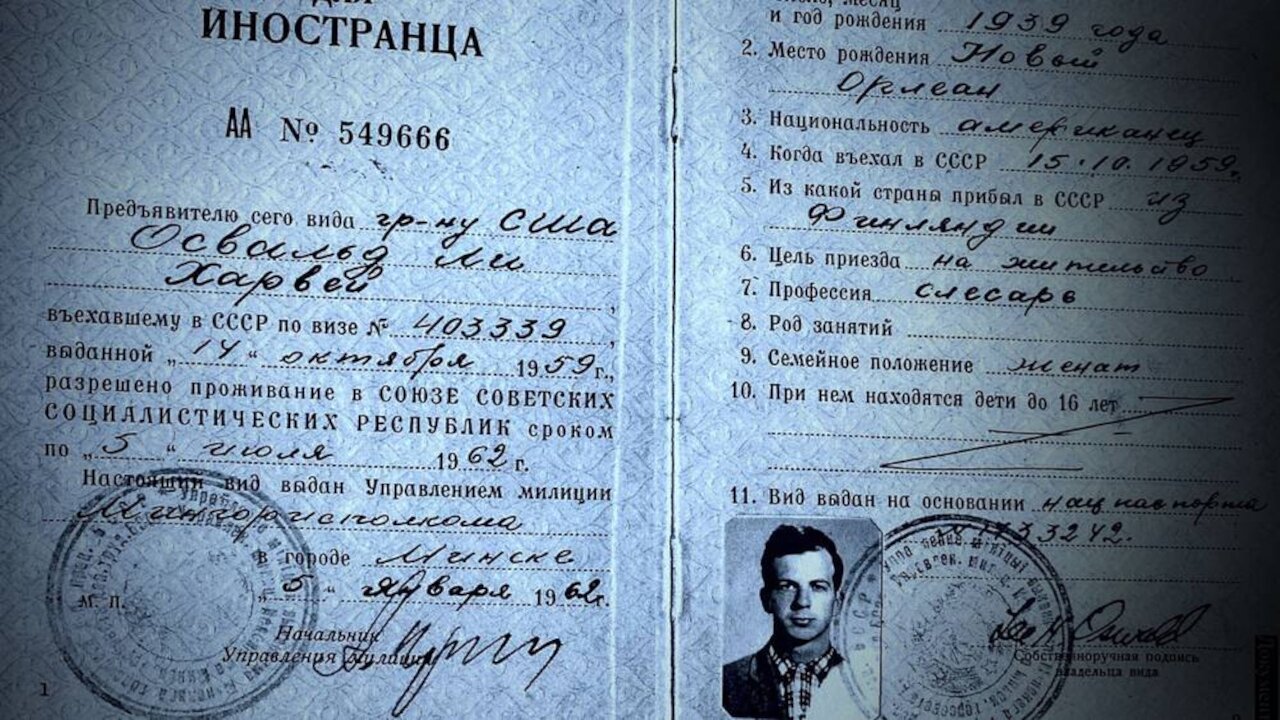 ИНОСТРАНЦА
АА № 549666
Предъявителю сего вида гр-ну США
Освальд Ли
Харвей
въехавшему в СССР по визе № 403339,
выданной „14“ октября 1959 г.,
разрешено проживание в СОЮЗЕ СОВЕТСКИХ
СОЦИАЛИСТИЧЕСКИХ РЕСПУБЛИК сроком
по „5“ июля 1962 г.
Настоящий вид выдан Управлением милиции
Мингорисполкома
в городе Минске
„5“ января 1962г.
М. П.
Начальник
Управления милиции
1
и год рождения 1939 года
2. Место рождения Новый
Орлеан
3. Национальность американец
4. Когда въехал в СССР 15.10.1959г.
5. Из какой страны прибыл в СССР из
Финляндии
6. Цель приезда на жительство
7. Профессия слесарь
8. Род занятий
9. Семейное положение женат
10. При нем находятся дети до 16 лет
11. Вид выдан на основании нац паспорта
33242.
Собственноручная подпись
владельца вида